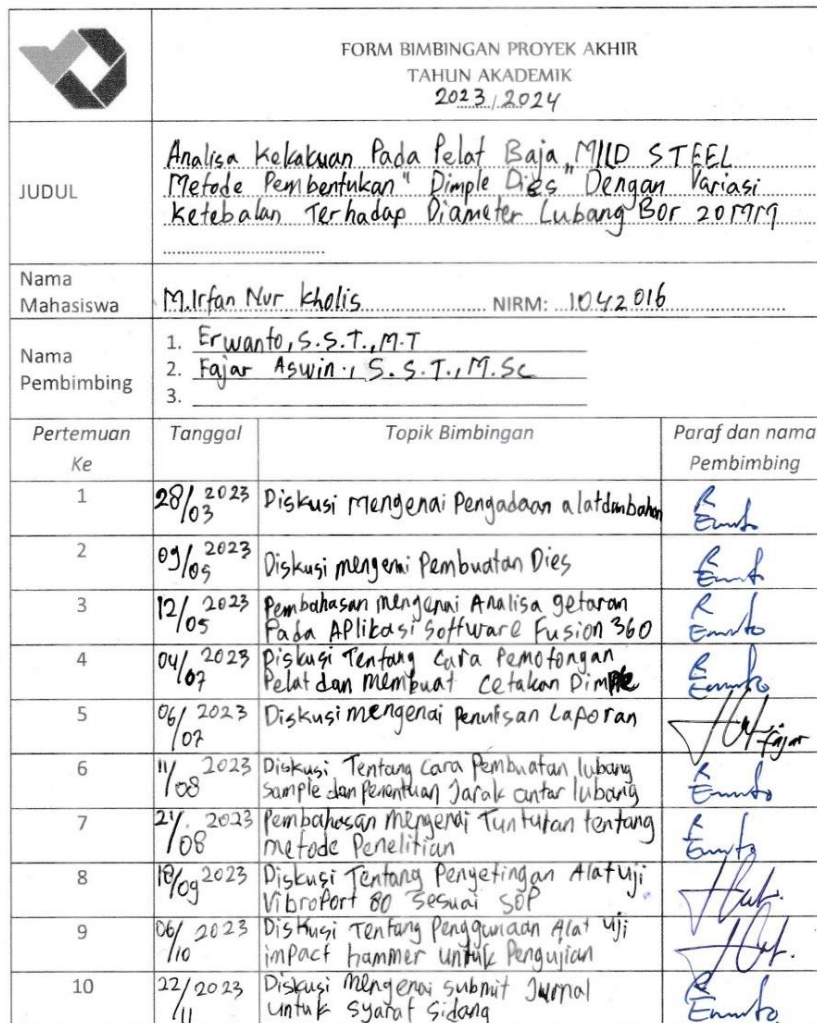 FORM BIMBINGAN PROYEK AKHIR
TAHUN AKADEMIK
2023/2024
JUDUL
Analisa Kekakuan Pada Pelat Baja "MILD STEEL
Metode Pembentukan "Dimple Dies" Dengan Variasi
Ketebalan Terhadap Diameter Lubang Bor 20 MM
Nama
Mahasiswa
M.Irfan Nur Kholis NIRM: 1042016
Nama
Pembimbing
1. Erwanto, S.S.T., M.T
2. Fajar Aswin., S.S.T., M.Sc
3.
Pertemuan
Ke
Tanggal
Topik Bimbingan
Paraf dan nama
Pembimbing
1 28/03 2023 Diskusi Mengenai Pengadaan alat dan bahan
2 09/05 2023 Diskusi mengenai Pembuatan Dies
3 12/05 2023 Pembahasan Mengenai Analisa getaran
Pada APlikasi Soffware Fusion 360
4 04/07 2023 Diskusi Tentang Cara Pemotongan
Pelat dan membuat Cetakan Dimple
5 06/07 2023 Diskusi mengenai Penulisan Laporan Fajar
6 11/08 2023 Diskusi Tentang Cara Pembuatan lubang
Sample dan Penentuan Jarak antar lubang
7 21/08 2023 Pembahasan Mengenai Tuntutan tentang
metode Penelitian
8 18/09 2023 Diskusi Tentang Penyetingan Alat Uji
VibroPort 80 Sesuai SOP
9 06/10 2023 Diskusi Tentang Penggunaan Alat Uji
impact hammer untuk Pengujian
10 22/11 2023 Diskusi Mengenai submit Jurnal
untuk syarat Sidang